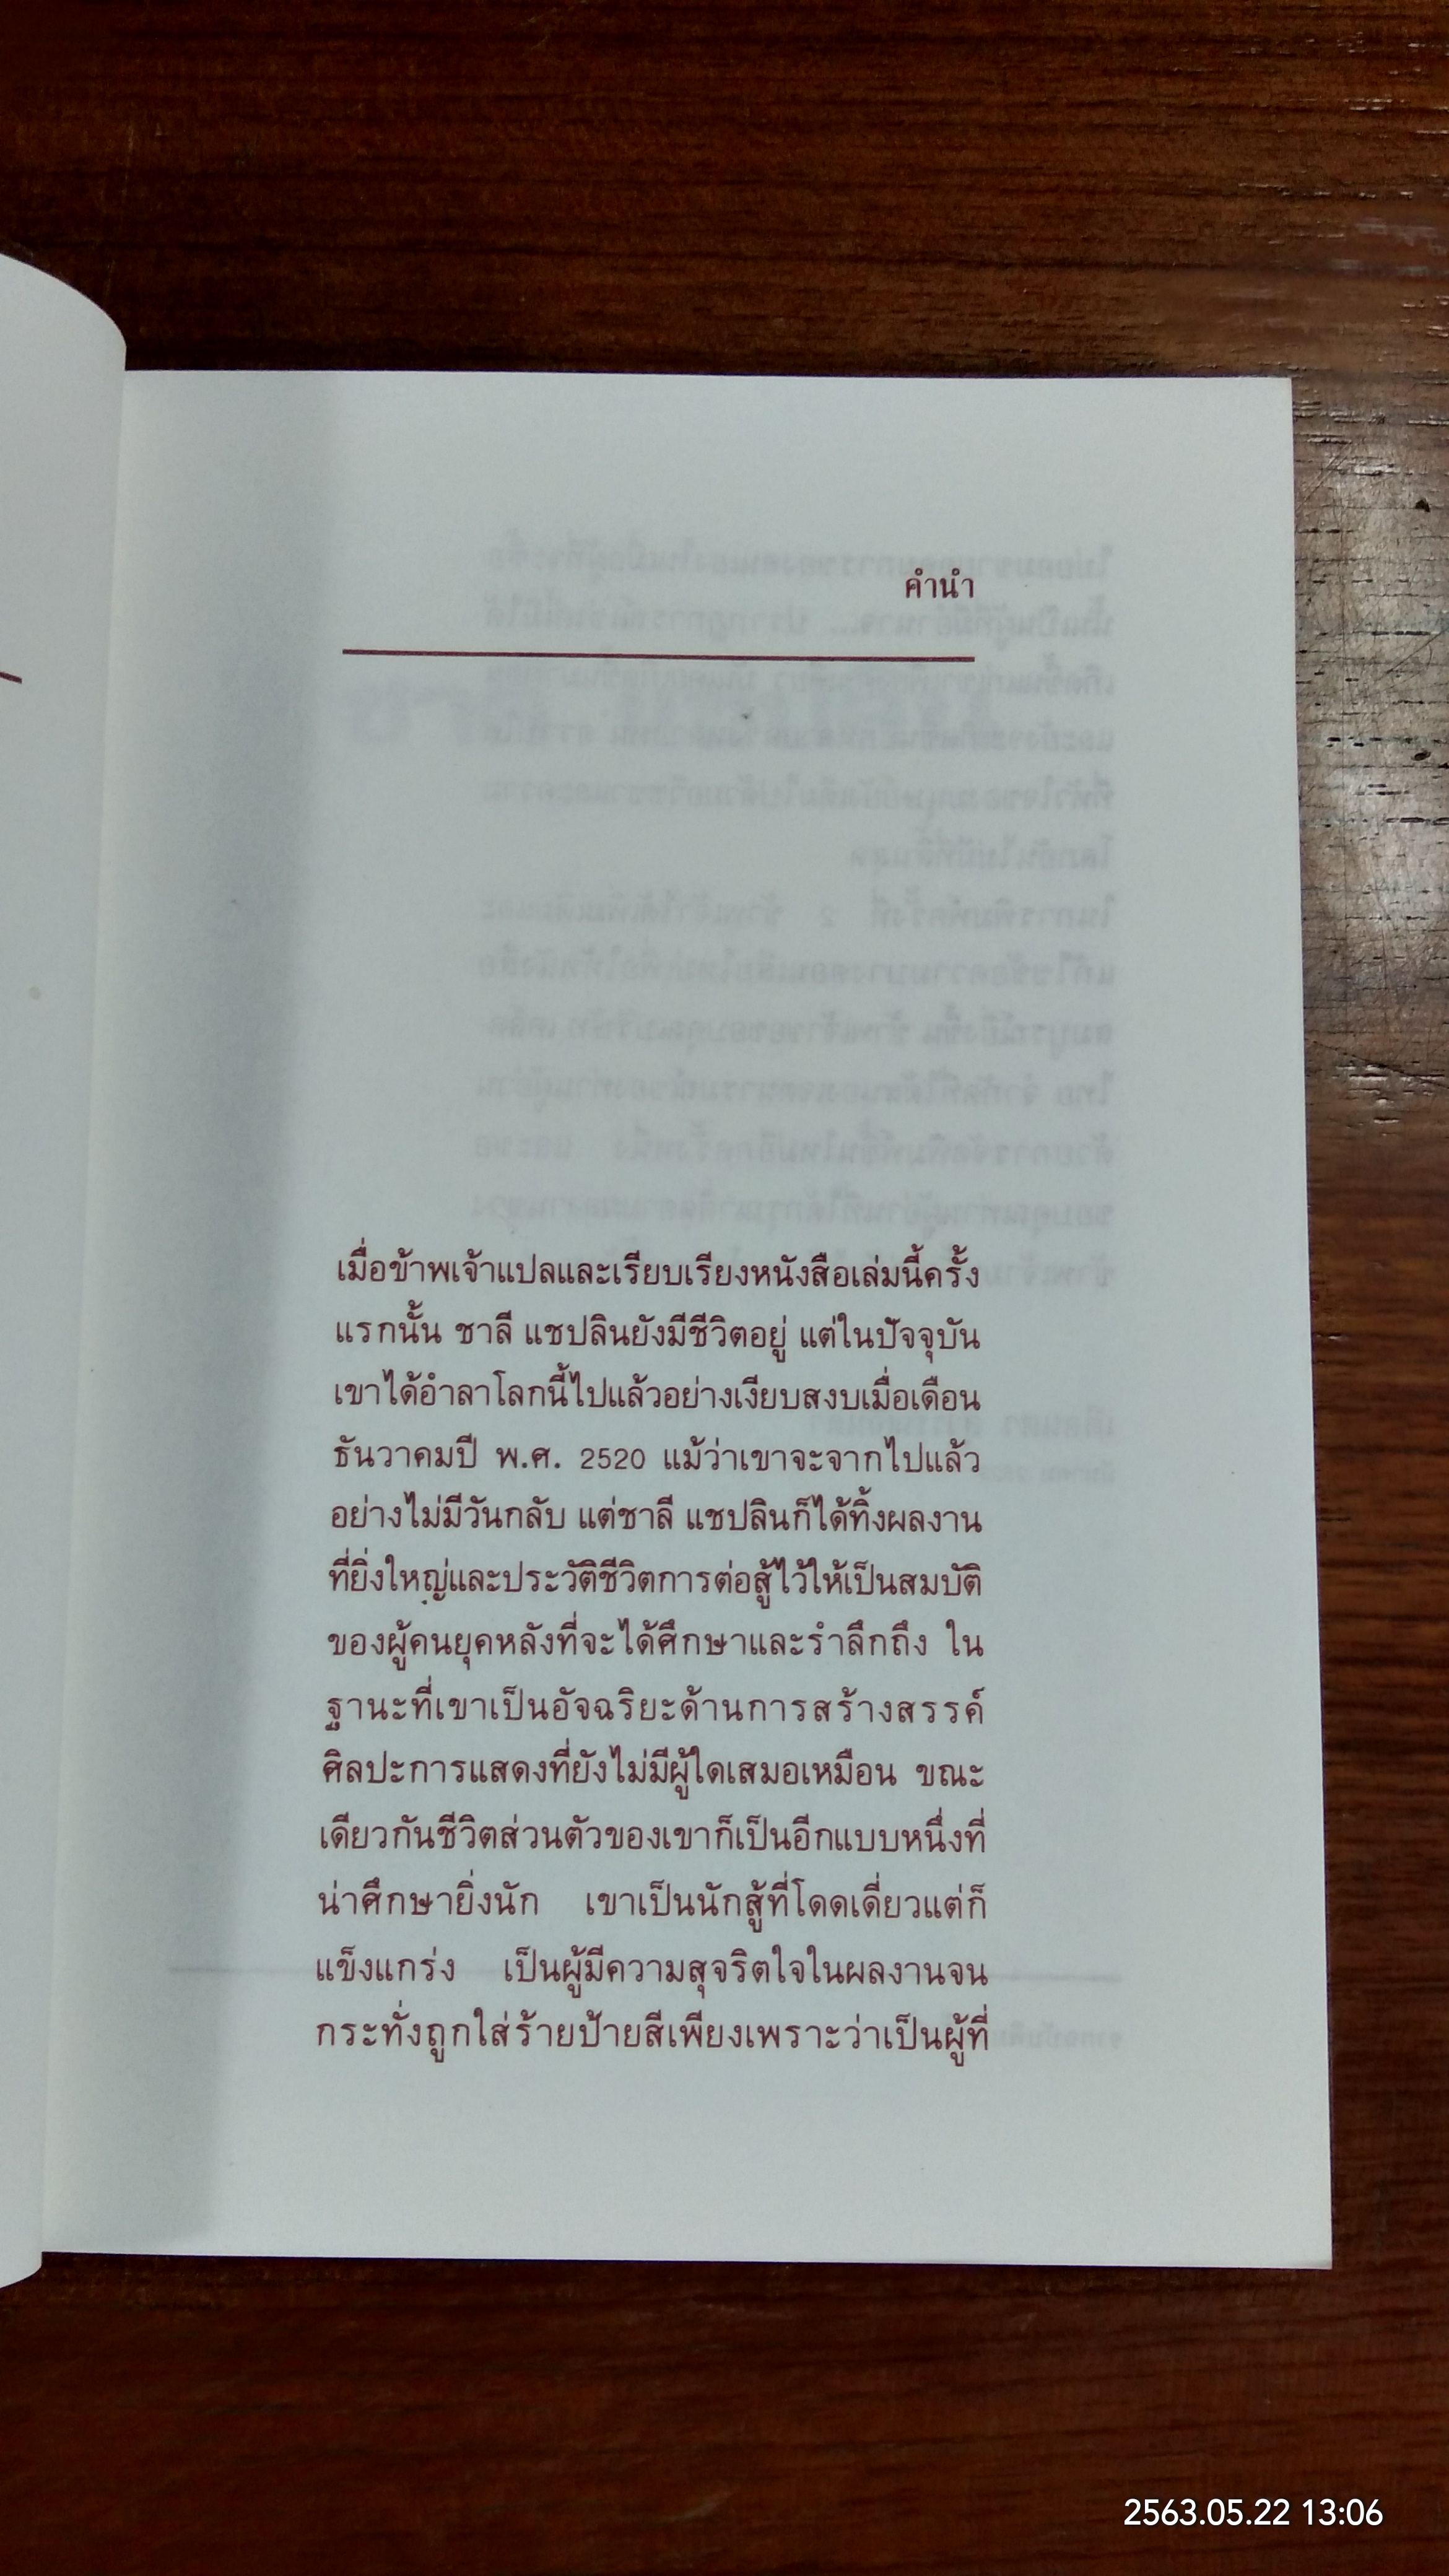 คำนำ
เมื่อข้าพเจ้าแปลและเรียบเรียงหนังสือเล่มนี้ครั้ง
แรกนั้น ชาลี แชปลินยังมีชีวิตอยู่ แต่ในปัจจุบัน
เขาได้อำลาโลกนี้ไปแล้วอย่างเงียบสงบเมื่อเดือน
ธันวาคมปี พ.ศ. 2520 แม้ว่าเขาจะจากไปแล้ว
อย่างไม่มีวันกลับ แต่ชาลี แชปลินก็ได้ทิ้งผลงาน
ที่ยิ่งใหญ่และประวัติชีวิตการต่อสู้ไว้ให้เป็นสมบัติ
ของผู้คนยุคหลังที่จะได้ศึกษาและรำลึกถึง ใน
ฐานะที่เขาเป็นอัจฉริยะด้านการสร้างสรรค์
ศิลปะการแสดงที่ยังไม่มีผู้ใดเสมอเหมือน ขณะ
เดียวกันชีวิตส่วนตัวของเขาก็เป็นอีกแบบหนึ่งที่
น่าศึกษายิ่งนัก เขาเป็นนักสู้ที่โดดเดี่ยวแต่ก็
แข็งแกร่ง เป็นผู้มีความสุจริตใจในผลงานจน
กระทั่งถูกใส่ร้ายป้ายสีเพียงเพราะว่าเป็นผู้ที่
2563.05.22 13:06